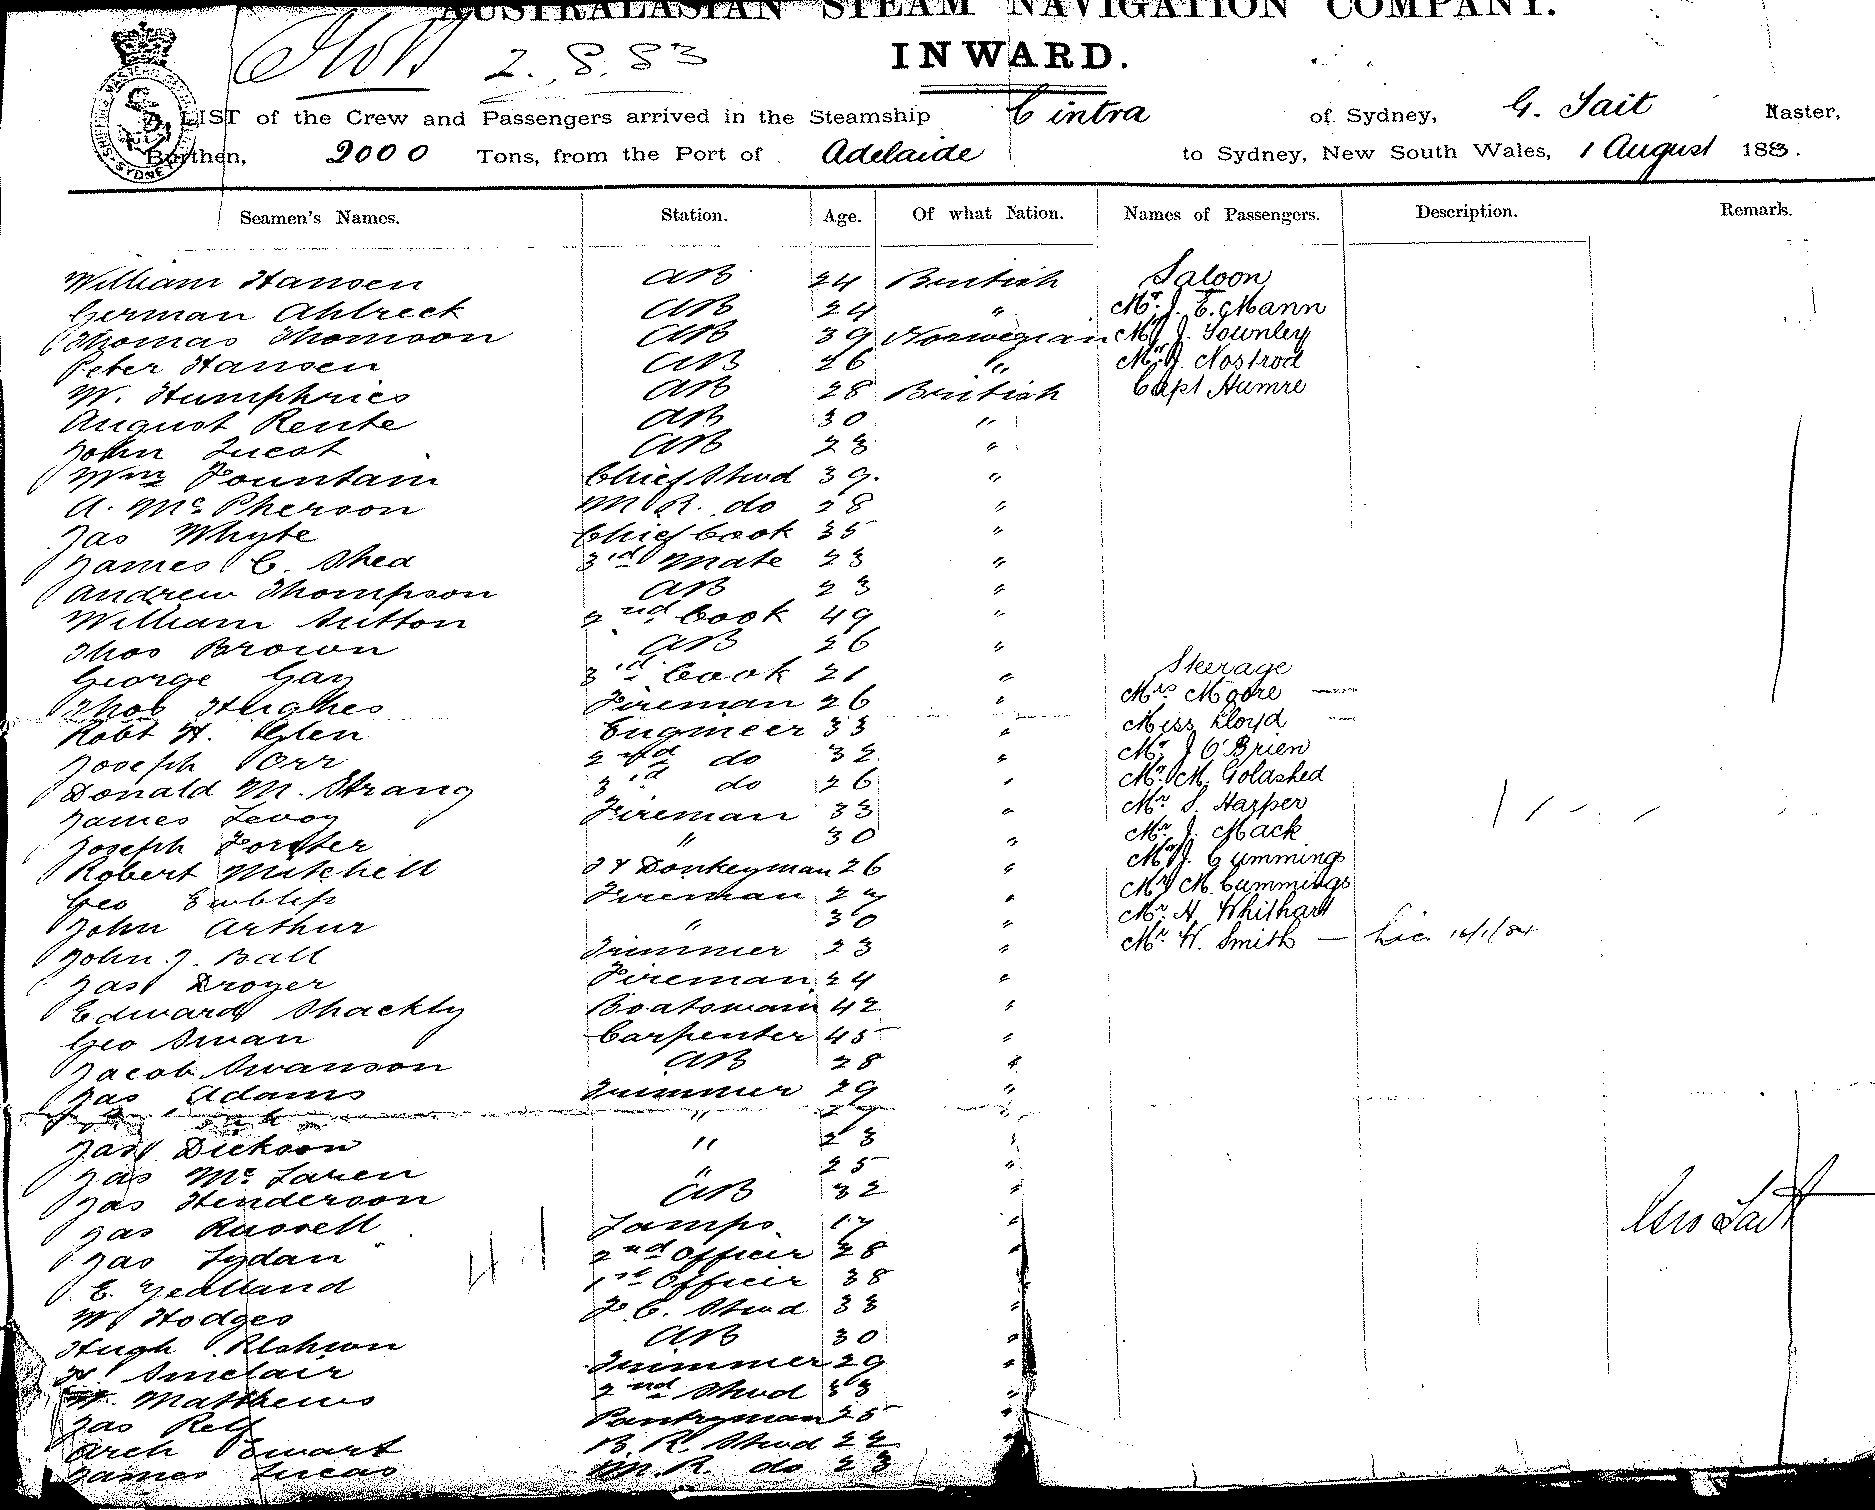 AUSTRALASIAN STEAM NAVIGATION COMPANY.
2.8.83
INWARD.
A LIST of the Crew and Passengers arrived in the Steamship Cintra of Sydney, G. Tait Master,
Burthen, 2000 Tons, from the Port of Adelaide to Sydney, New South Wales, 1 August 1883.
Seamen's Names. Station. Age. Of what Nation. Names of Passengers. Description. Remarks.
William Hansen AB 24 British Saloon
German Ahlreck AB 24 " Mr. J. E. Mann
Thomas Thomson AB 39 Norwegian Mr J. Townley
Peter Hansen AB 26 " Mr J. Nostrod
W. Humphries AB 28 British Capt Humre
August Rente AB 30 "
John AB 23 "
Wm Fountain Chief Stwd 39. "
A. McPherson M R. do 28 "
Jas Whyte Chief Cook 35 "
James C. Shea 3rd Mate 23 "
Andrew Thompson AB 23 "
William Sutton 2nd Cook 49 "
Thos Brown AB 26 "
George Gay 3rd Cook 21 " Steerage
Thos Hughes Fireman 26 " Mrs Moore
Robt H. Glen Engineer 33 " Miss Lloyd
Joseph Orr 2nd do 32 " Mr J O'Brien
Donald M. Strang 3rd do 26 " Mr. M. Goldshed
James Levoy Fireman 33 " Mr S. Harper
Joseph Forster " 30 " Mr. J. Mack
Robert Mitchell Donkeyman 26 " Mr J. Cummings
Geo Fireman 27 " Mr M. Cummings
John Arthur " 30 " Mr. H. Whithart
John J. Ball Trimmer 23 " Mr. W. Smith —
Jas Droyer Fireman 24 "
Edward Shackly Boatswain 42 "
Geo Swan Carpenter 45 "
Jacob Swanson AB 28 "
Jas Adams Trimmer 29 "
" "
Jas Dickson " 23 "
Jas McLaren " 25 "
Jas Henderson AB 32 "
Jas Russell Lamps. 17 "
Jas Lydan 2nd Officer 28 "
E. Yealland 1st Officer 38 "
W Hodges F. C. Stwd 33 "
Hugh AB 30 "
Sinclair Trimmer 29 "
W. Matthews 2nd Stwd 33 "
Jas Relf Pantryman 25 "
Arch Ewart B. R. Stwd 22 "
James Lucas M. R. do 23
Geo Tait